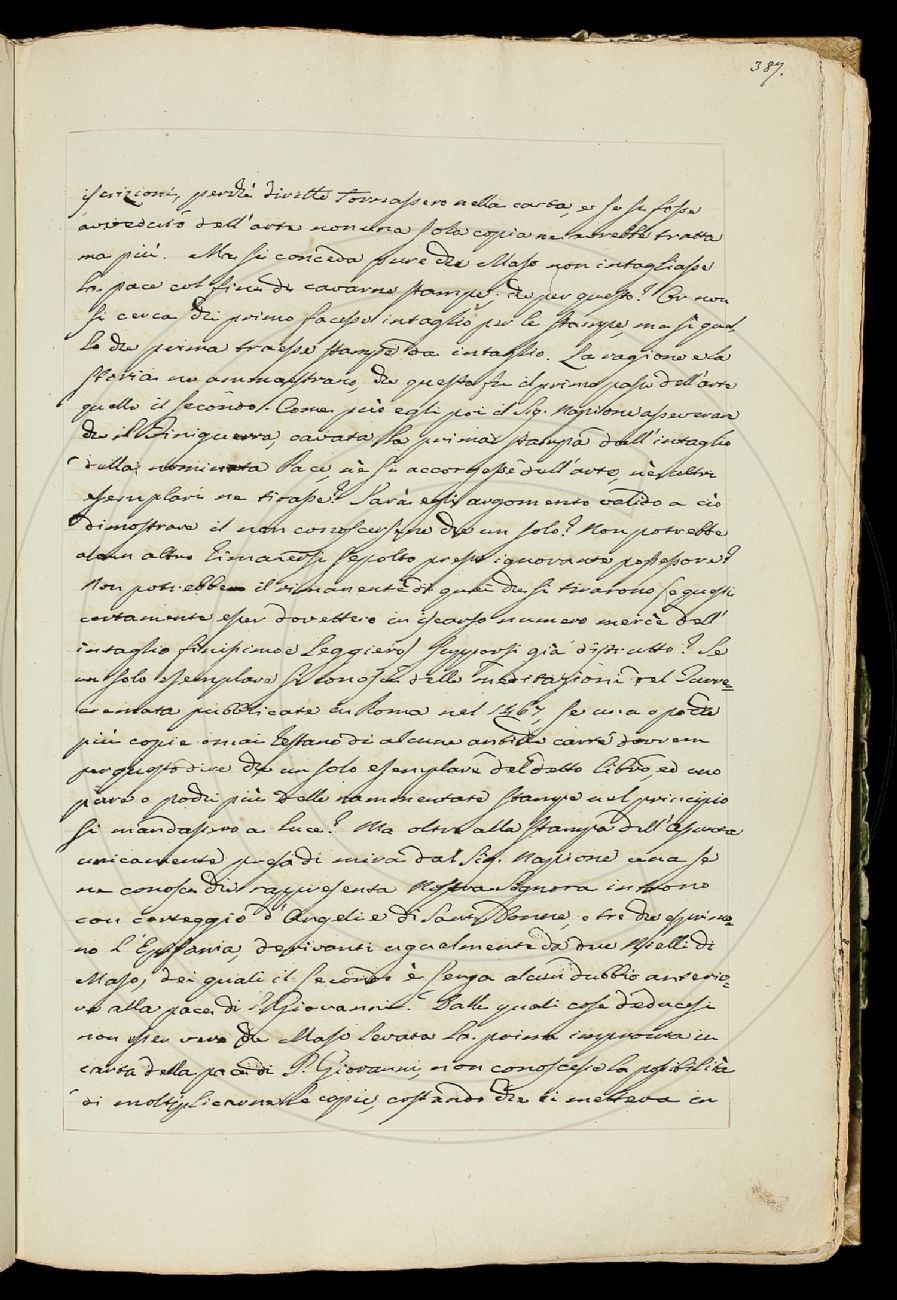 387.
iscrizioni, perchè diritte tornassero nella carta, e se si fosse
avveduto dell'arte non una sola copia ne avrebbe tratta
ma più. Ma si conceda pure che Maso non intagliasse
la pace col fine di cavarne stampe; che per questo? Or non
si cerca chi primo facesse intaglio per le stampe, ma sì quel
lo che prima traesse stampe da intaglio. La ragione e la
storia ne ammaestrano, che questo fu il primo passo dell'arte
quello il secondo. Come può egli poi il Sig. Napione asseverar
che il Finiguerra, cavata la prima stampa dall'intaglio
della nominata Pace, nè si accorgesse dell'arte, nè altri
esemplari ne tirasse? Sarà egli argomento valido a ciò
dimostrare il non conoscersene che un solo? Non potrebbe
alcun altro rimanersi sepolto presso ignorante possessore?
Non potrebbe il rimanente di quei che si tirarono (e questi
certamente esser dovettero in iscarso numero mercè dell'
intaglio finissimo e leggiero) supporsi già distrutto? Se
un solo esemplare si conosce delle meditazioni del Turre=
cremata pubblicate in Roma nel 1467, se una o poche
più copie omai restano di alcune antiche carte dovrem
per questo dire che un solo esemplare del detto libro, ed uno
pure o pochi più delle rammentate stampe nel principio
si mandassero a luce? Ma oltre alla stampa dell'Assunta
unicamente presa di mira dal Sig. Napione una se
ne conosce che rappresenta Nostra Signora in trono
con corteggio d'Angeli e di Sante Donne, e tre che esprimo=
no l'Epifania, derivanti egualmente da due Nielli di
Maso, dei quali il secondo è senza alcun dubbio anterio=
re alla pace di S. Giovanni. Dalle quali cose deducesi
non esser vero che Maso levata la prima impronta in
carta della pace di S. Giovanni, non conoscesse la possibilità
di moltiplicarne le copie, costando che ei metteva in